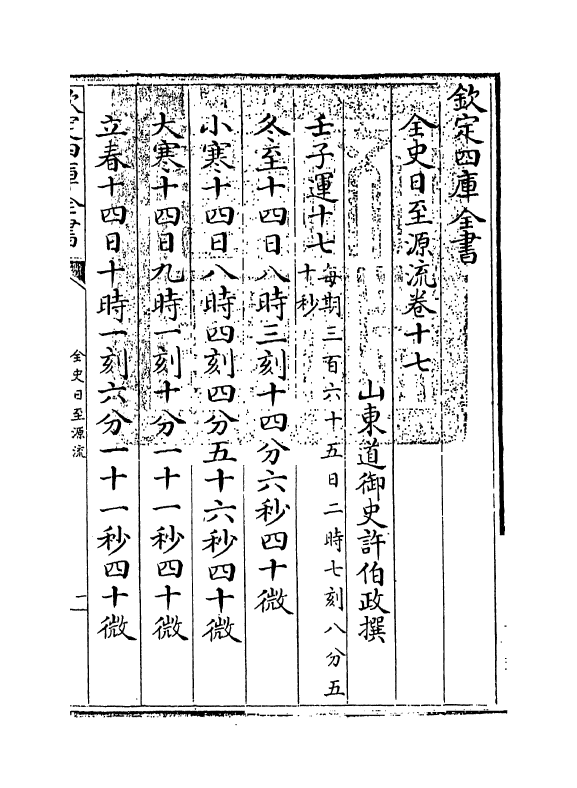 欽定四庫全書
全史日至源流卷十七
山東道御史許伯政撰
壬子運十七每期三百六十五日二時七刻八分五
十秒
冬至十四日八時三刻十四分六秒四十微
小寒十四日八時四刻四分五十六秒四十微
大寒十四日九時一刻十分一十一秒四十微
立春十四日十時一刻六分一十一秒四十微
欽定四庫全書
全史日至源流